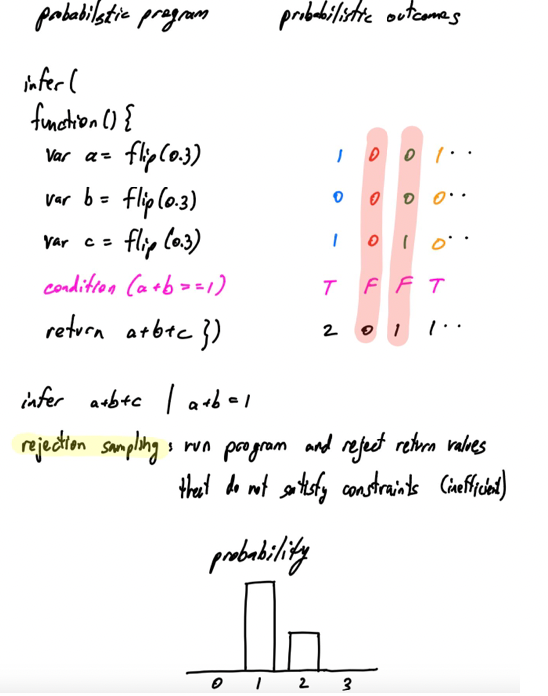 probabilistic program probabilistic outcomes
infer (
function () {
var a = flip (0.3) 1 0 0 1 . .
var b = flip (0.3) 0 0 0 0 . .
var c = flip (0.3) 1 0 1 0 . .
condition (a+b ==1) T F F T
return a+b+c }) 2 0 1 1 . .
infer a+b+c | a+b = 1
rejection sampling : run program and reject return values
that do not satisfy constraints (inefficient)
probability
0 1 2 3